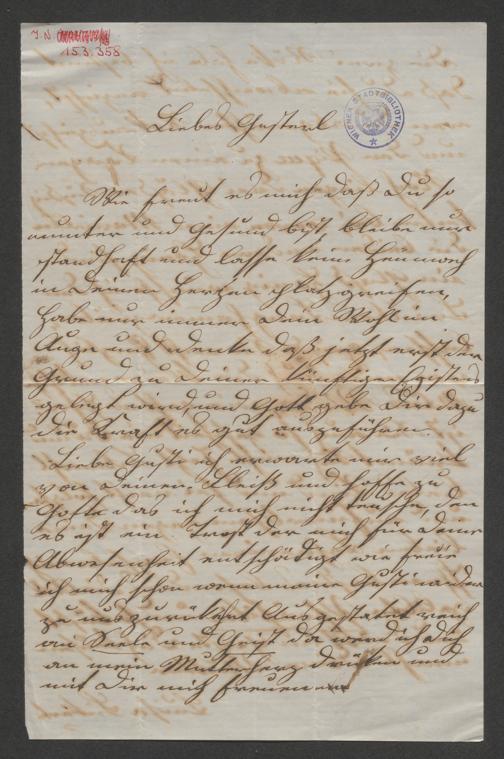 J. N.
153.358
WIENER STADTBIBLIOTHEK
Liebes Gusterl
Wie freut es mich daß du so
munter und gesund bist, bleibe nur
standhaft und lasse kein Heimweh
in deinem Herzen platzgreifen,
habe nur immer dein Wohl im
Auge und denke daß jetzt erst der
Grund zu deiner künftigen Existenz
gelegt wird, und Gott gebe Dir dazu
die Kraft es gut auszuführen.
Liebe Gusti ich erwarte mir viel
von deinem Fleiß und hoffe zu
Gott das ich mich nicht teusche, den
es ist ein Trost der mich für deine
Abwesenheit entschädigt wie freue
ich mich schon wenn meine Gusti wieder
zu uns zurükkehrt Ausgestattet reich
an Seele und Geist da werd ich dich
an mein Mutterherz drüken und
mit dir mich freuen